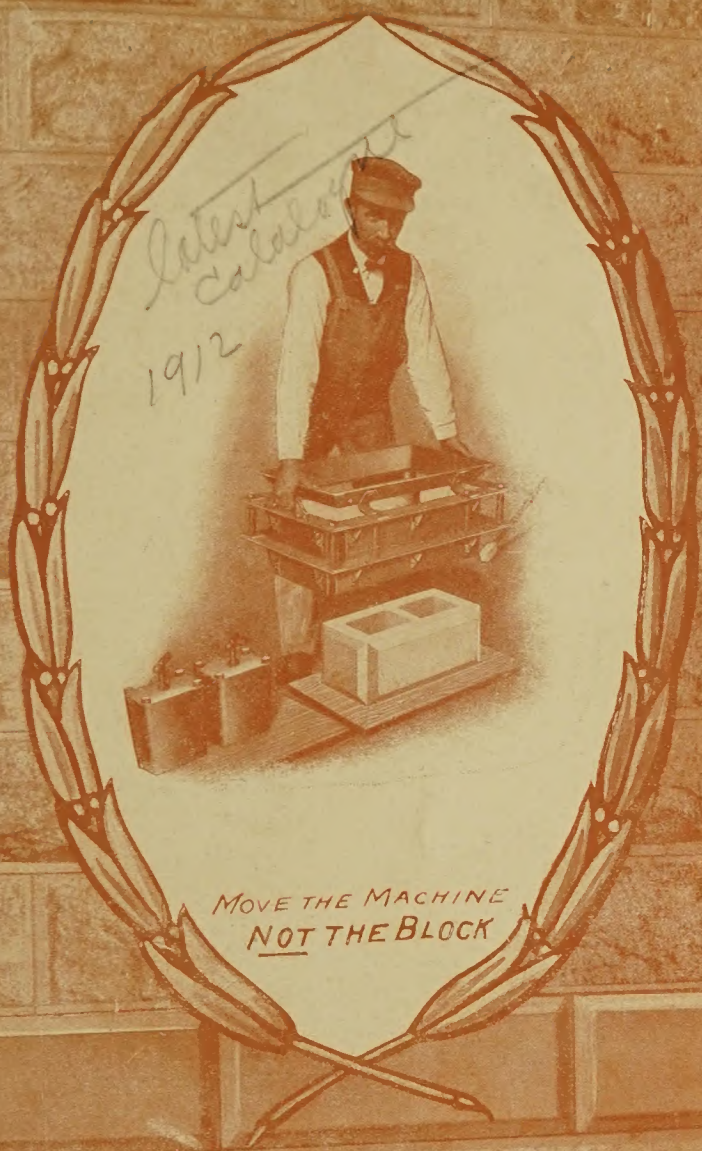 latest
catalogue
1912
MOVE THE MACHINE
NOT THE BLOCK